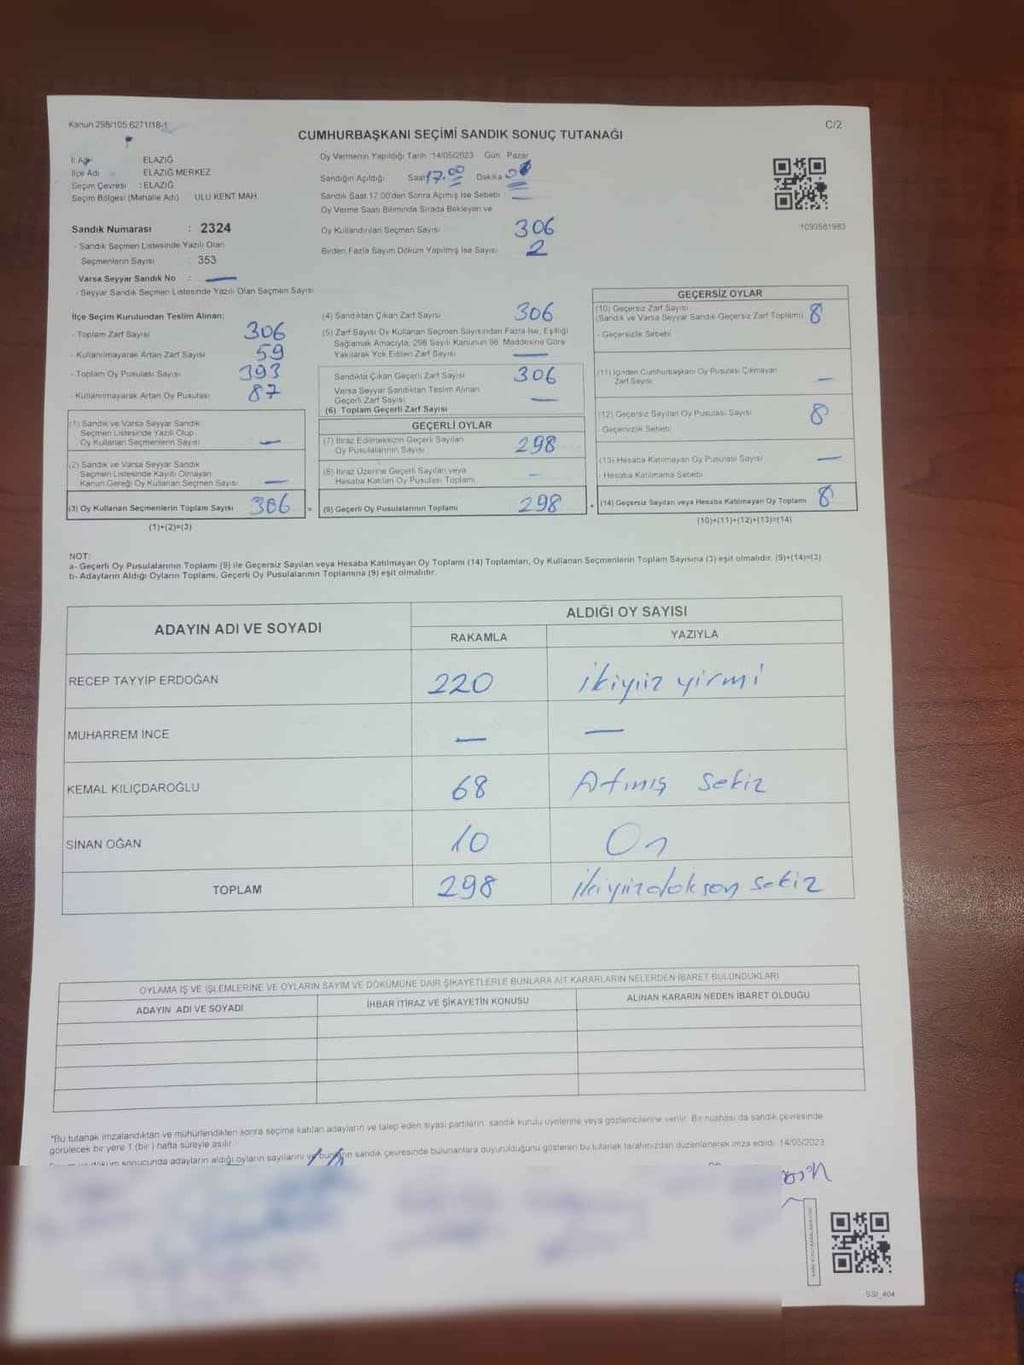 Kanun 298/105 6271/18-1
C/2
CUMHURBAŞKANI SEÇİMİ SANDIK SONUÇ TUTANAĞI
İl Adı ELAZIĞ
İlçe Adı ELAZIĞ MERKEZ
Seçim Çevresi : ELAZIĞ
Seçim Bölgesi (Mahalle Adı) ULU KENT MAH
Sandık Numarası : 2324
- Sandık Seçmen Listesinde Yazılı Olan
Seçmenlerin Sayısı : 353
Varsa Seyyar Sandık No : —
- Seyyar Sandık Seçmen Listesinde Yazılı Olan Seçmen Sayısı
Oy Vermenin Yapıldığı Tarih :14/05/2023 Gün Pazar
Sandığın Açıldığı Saat 17.00 Dakika
Sandık Saat 17.00'den Sonra Açılmış İse Sebebi —
Oy Verme Saati Bitiminde Sırada Bekleyen ve
Oy Kullandırılan Seçmen Sayısı 306
Birden Fazla Sayım Döküm Yapılmış İse Sayısı 2
1093581983
İlçe Seçim Kurulundan Teslim Alınan;
- Toplam Zarf Sayısı 306
- Kullanılmayarak Artan Zarf Sayısı 59
- Toplam Oy Pusulası Sayısı 393
- Kullanılmayarak Artan Oy Pusulası 87
(1) Sandık ve Varsa Seyyar Sandık
Seçmen Listesinde Yazılı Olup
Oy Kullanan Seçmenlerin Sayısı —
(2) Sandık ve Varsa Seyyar Sandık
Seçmen Listesinde Kayıtlı Olmayan
Kanun Gereği Oy Kullanan Seçmen Sayısı —
(3) Oy Kullanan Seçmenlerin Toplam Sayısı 306
(1)+(2)=(3)
(4) Sandıktan Çıkan Zarf Sayısı 306
(5) Zarf Sayısı Oy Kullanan Seçmen Sayısından Fazla İse, Eşitliği
Sağlamak Amacıyla, 298 Sayılı Kanunun 98. Maddesine Göre
Yakılarak Yok Edilen Zarf Sayısı —
Sandıkta Çıkan Geçerli Zarf Sayısı 306
Varsa Seyyar Sandıktan Teslim Alınan
Geçerli Zarf Sayısı —
(6) Toplam Geçerli Zarf Sayısı
GEÇERLİ OYLAR
(7) İtiraz Edilmeksizin Geçerli Sayılan
Oy Pusulalarının Sayısı 298
(8) İtiraz Üzerine Geçerli Sayılan veya
Hesaba Katılan Oy Pusulası Toplamı —
= (9) Geçerli Oy Pusulalarının Toplamı 298
GEÇERSİZ OYLAR
(10) Geçersiz Zarf Sayısı
(Sandık ve Varsa Seyyar Sandık Geçersiz Zarf Toplamı) 8
- Geçersizlik Sebebi
(11) İçinden Cumhurbaşkanı Oy Pusulası Çıkmayan
Zarf Sayısı —
(12) Geçersiz Sayılan Oy Pusulası Sayısı 8
- Geçersizlik Sebebi
(13) Hesaba Katılmayan Oy Pusulası Sayısı —
- Hesaba Katılmama Sebebi
+ (14) Geçersiz Sayılan veya Hesaba Katılmayan Oy Toplamı 8
(10)+(11)+(12)+(13)=(14)
NOT:
a- Geçerli Oy Pusulalarının Toplamı (9) ile Geçersiz Sayılan veya Hesaba Katılmayan Oy Toplamı (14) Toplamları, Oy Kullanan Seçmenlerin Toplam Sayısına (3) eşit olmalıdır. (9)+(14)=(3)
b- Adayların Aldığı Oyların Toplamı, Geçerli Oy Pusulalarının Toplamına (9) eşit olmalıdır.
ADAYIN ADI VE SOYADI
ALDIĞI OY SAYISI
RAKAMLA YAZIYLA
RECEP TAYYİP ERDOĞAN 220 ikiyüz yirmi
MUHARREM İNCE — —
KEMAL KILIÇDAROĞLU 68 Atmış sekiz
SİNAN OĞAN 10 On
TOPLAM 298 ikiyüzdoksan sekiz
OYLAMA İŞ VE İŞLEMLERİNE VE OYLARIN SAYIM VE DÖKÜMÜNE DAİR ŞİKAYETLERLE BUNLARA AİT KARARLARIN NELERDEN İBARET BULUNDUKLARI
ADAYIN ADI VE SOYADI İHBAR İTİRAZ VE ŞİKAYETİN KONUSU ALINAN KARARIN NEDEN İBARET OLDUĞU
*Bu tutanak imzalandıktan ve mühürlendikten sonra seçime katılan adayların ve talep eden siyasi partilerin, sandık kurulu üyelerine veya gözlemcilerine verilir. Bir nüshası da sandık çevresinde
görülecek bir yere 1 (bir) hafta süreyle asılır.
sonucunda adayların aldığı oyların sayılarını ve sandık çevresinde bulunanlara duyurulduğunu gösteren bu tutanak tarafımızdan düzenlenerek imza edildi. 14/05/2023
SSI_404